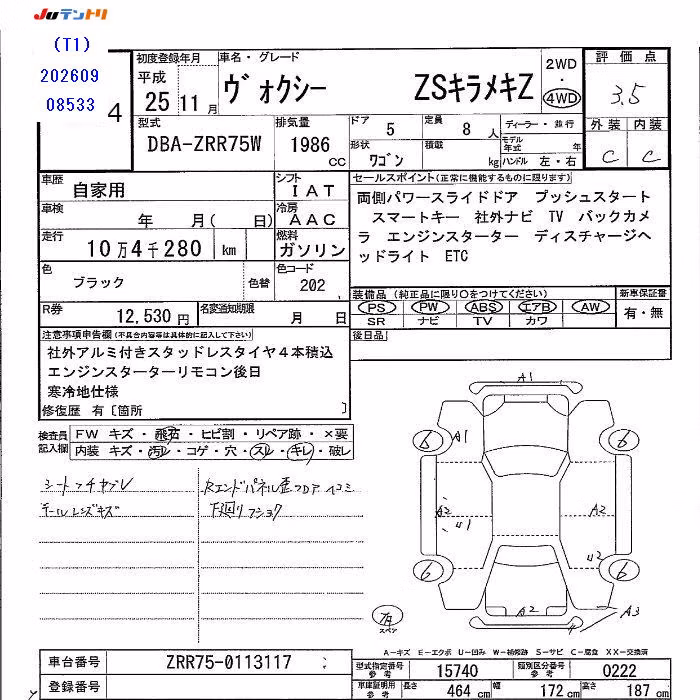 JUテントリ
(T1)
202609
08533
4
初度登録年月
平成
25 11月
車名・グレード
ヴォクシー ZSキラメキZ
2WD
・
4WD
評価点
3.5
型式
DBA-ZRR75W
排気量
1986
cc
ドア 5
定員 8 人
ディーラー・並行
モデル年式 年
形状 ワゴン
積載 kg
ハンドル 左・右
外装 内装
C C
車歴
自家用
シフト
IAT
車検
年 月( 日)
冷房
AAC
走行
10万4千280 km
燃料
ガソリン
色
ブラック
色替
色コード
202
R券
12,530円
名変通知期限
月 日
セールスポイント(正常に機能するものに限ります)
両側パワースライドドア プッシュスタート
スマートキー 社外ナビ TV バックカメ
ラ エンジンスターター ディスチャージヘ
ッドライト ETC
装備品 (純正品に限り○をつけてください)
新車保証書
PS PW ABS エアB AW
有・無
SR ナビ TV カワ
後日品
注意事項申告欄(不具合内容等は具体的に記入して下さい)
社外アルミ付きスタッドレスタイヤ4本積込
エンジンスターターリモコン後日
寒冷地仕様
修復歴 有〔箇所 〕
検査員
記入欄
FW キズ・飛石・ヒビ割・リペア跡・×要
内装 キズ・汚レ・コゲ・穴・スレ・キレ・破レ
シート
テールレンズキズ
Rエンドパネル
下廻り
A1
A1
6
6
6
6
A2
A2
U1
U2
A2
A3
スペア
A-キズ E-エクボ U-凹み W-補修跡 S-サビ C-腐食 XX-交換済
車台番号
ZRR75-0113117
登録番号
型式指定番号
参考
15740
類別区分番号
参考
0222
車庫証明用
参考
長さ 464 cm
幅 172 cm
高さ 187 cm